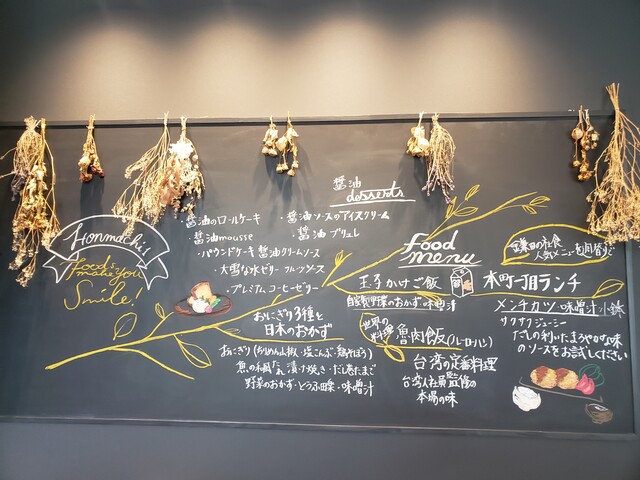 Honmachi!
Foods
makes you
Smile!
醤油
desserts
・醤油のロールケーキ
・醤油ソースのアイスクリーム
・醤油mousse
・醤油ブリュレ
・パウンドケーキ醤油クリームソース
・大雪な水ゼリー フルーツソース
・プレミアムコーヒーゼリー
おにぎり3種と
日本のおかず
おにぎり(ちりめん山椒・塩こんぶ・鶏そぼろ)
魚の 漬け焼き・だし巻たまご
野菜のおかず・とうふ田楽・味噌汁
food
menu
玉子かけご飯
自家製野菜のおかず・味噌汁
世界の
料理
魯肉飯(ルーロハン)
台湾の定番料理
台湾人社員監修の
本場の味
の社食
人気メニュー
本町一丁目ランチ
メンチカツ・味噌汁・小鉢
サクサクジューシー
だしの利いたまろやかな味
のソースをお試しください